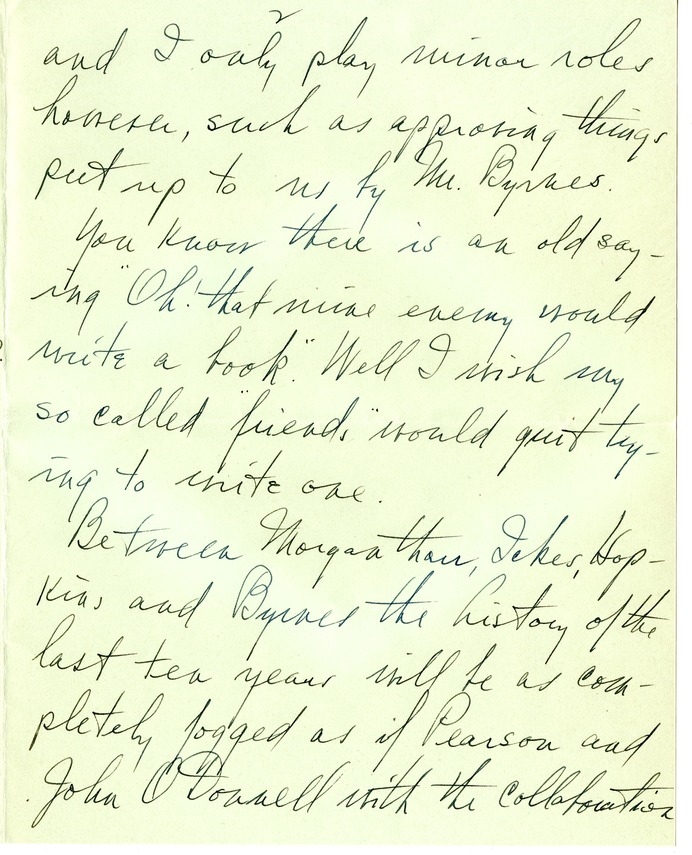 2
and I only play minor roles
however, such as approving things
put up to us by Mr. Byrnes.
You know there is an old say-
ing "Oh! that mine enemy would
write a book". Well I wish my
so called "friends" would quit try-
ing to write one.
Between Morganthau, Ickes, Hop-
kins and Byrnes the history of the
last ten years will be as com-
pletely fogged as if Pearson and
John O'Donnell with the collaboration